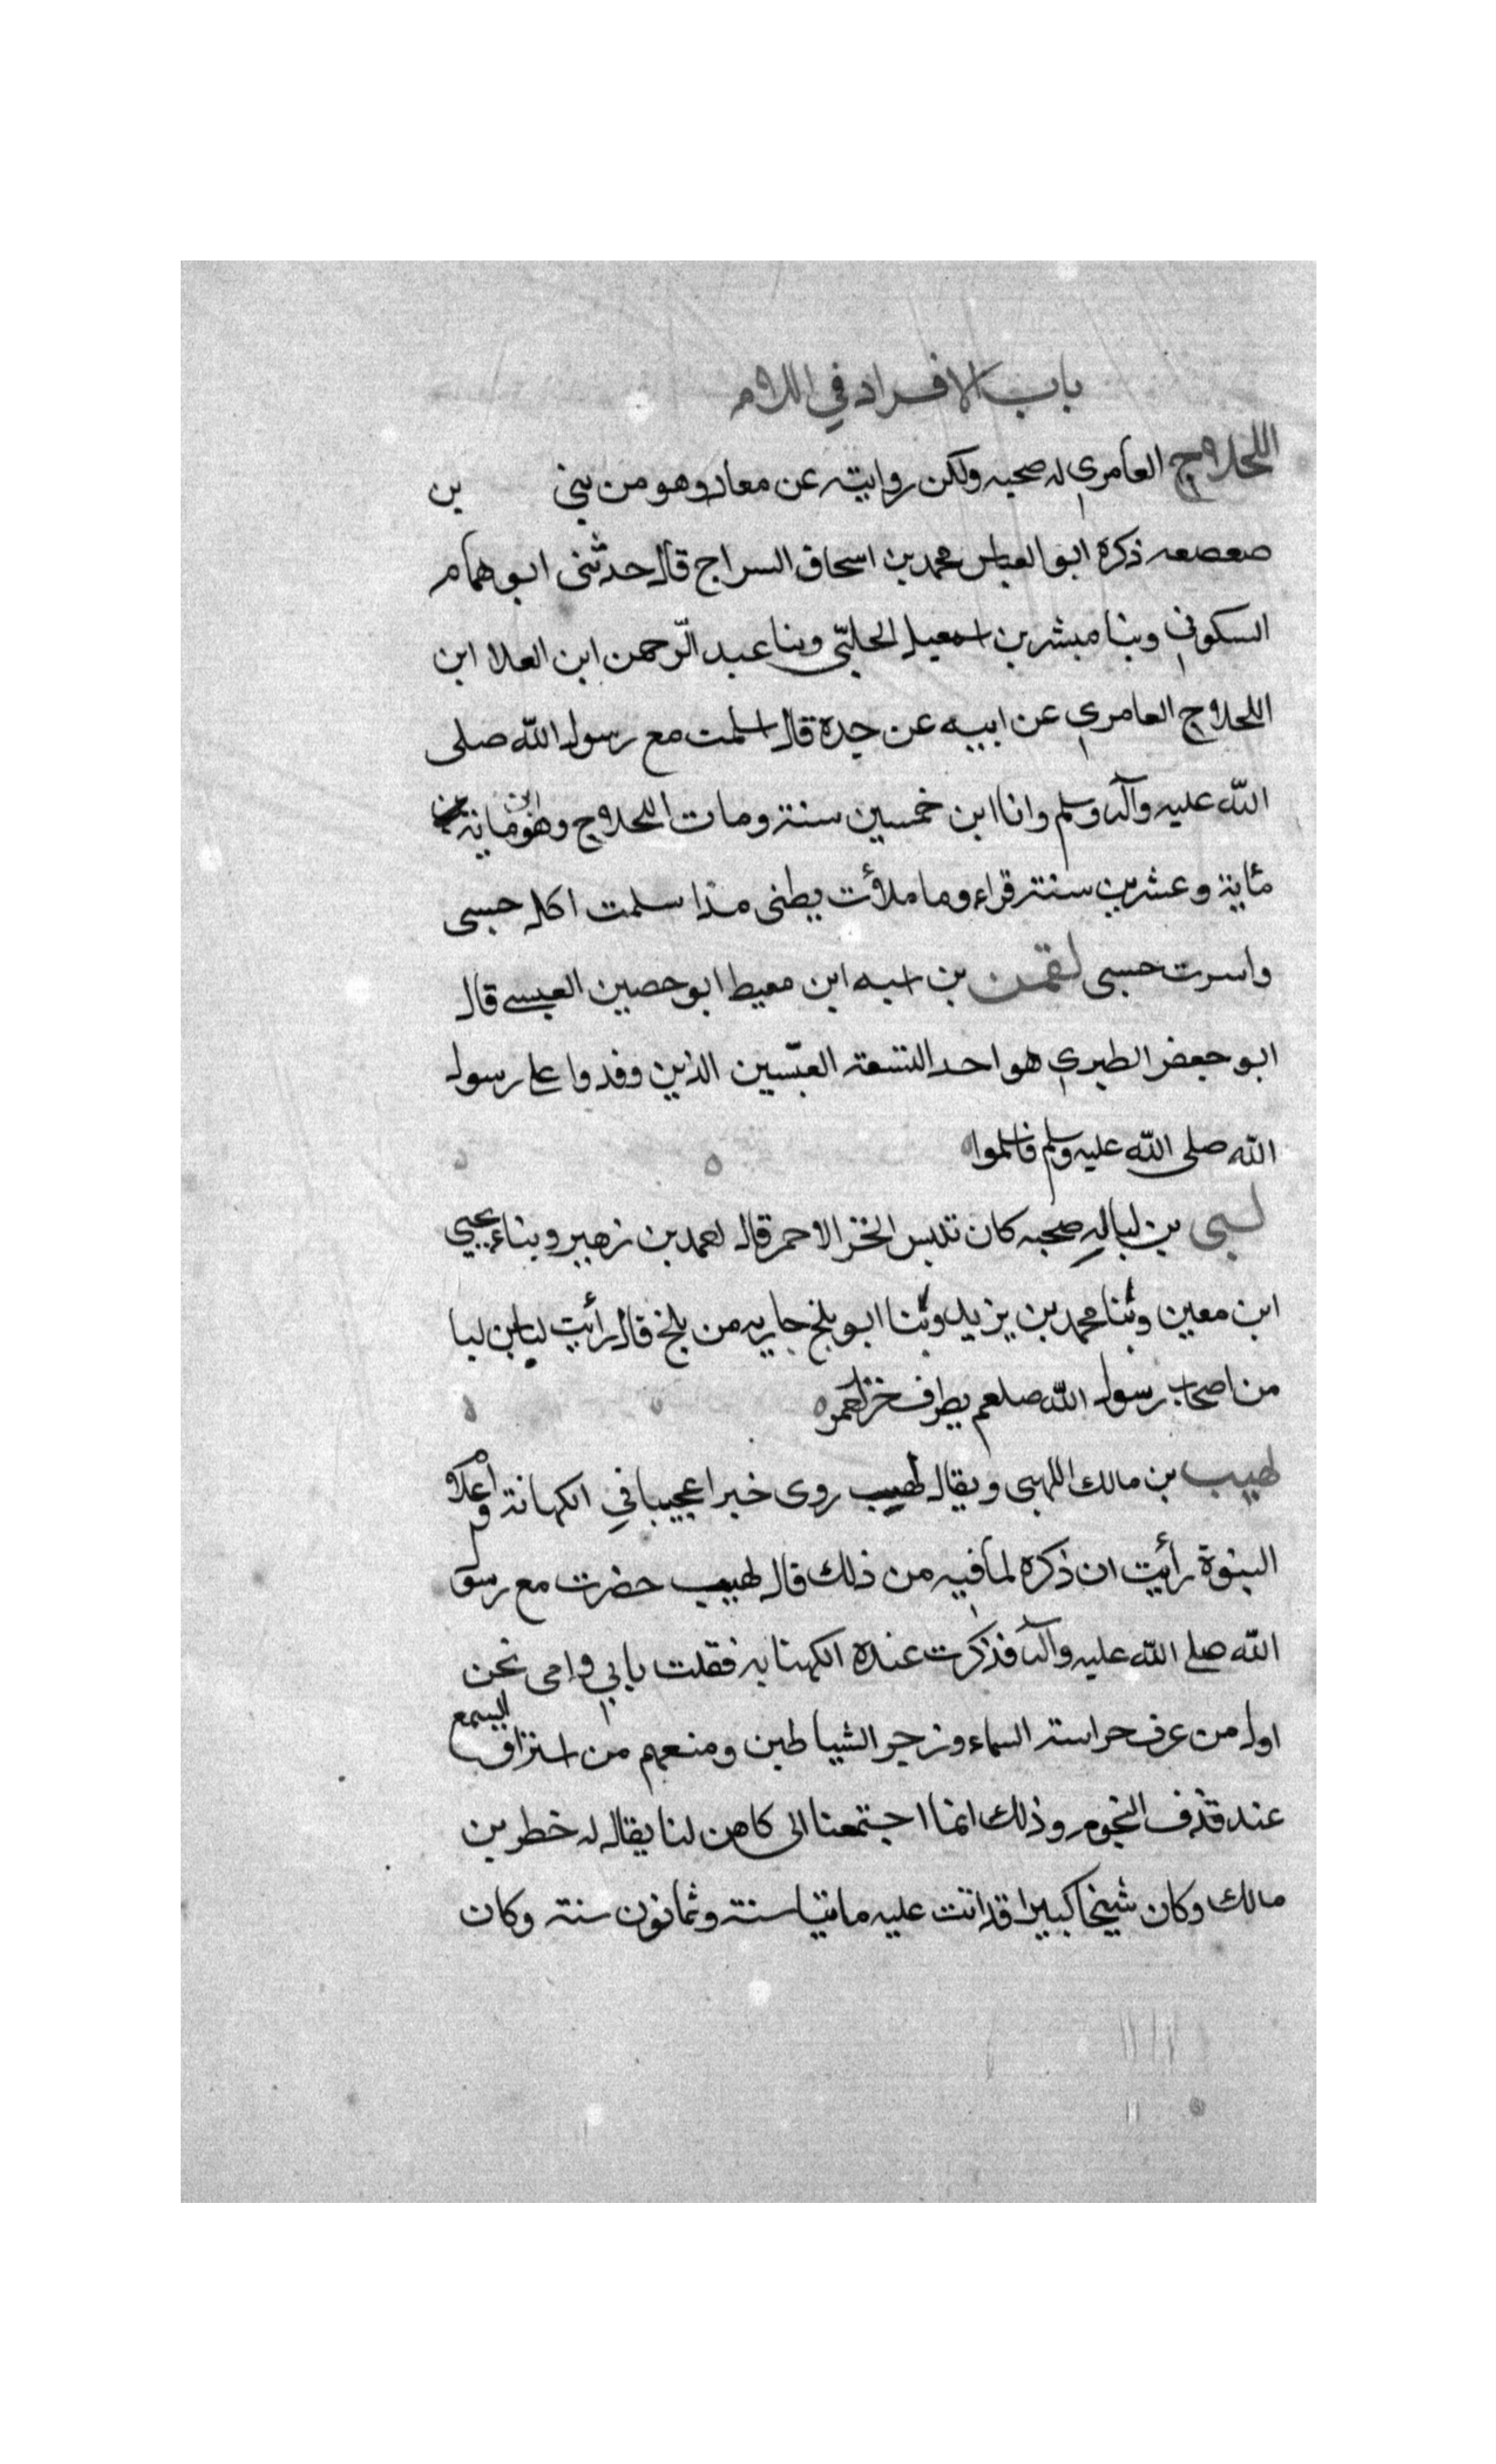 باب الافراد في اللام
اللجلاج العامري له صحبه ولكن روايته عن معاذ وهو من بني بن
صعصعه ذكره ابو العباس محمد بن اسحاق السراج قال حدثنى ابو همام
السكوني وبنا مبشر بن اسمعيل الحلبّي وبنا عبد الرّحمن ابن العلا ابن
اللجلاج العامري عن ابيه عن جده قال اسلمت مع رسول الله صلى
الله عليه وآله وسلم وانا ابن خمسين سنة ومات اللجلاج وهو ابن مابة
مئاية وعشرين سنة قراء وما ملأت بطنى مذا سلمت اكل حسبى
واسرت حسبى لقمن بن اسه ابن معيط ابو حصين العبسے قال
ابو جعفر الطبري هو احد التسعة العبّسين الذين وفدوا على رسول
الله صلى الله عليه وسلم فاسلموا
لبى بن لبا له صحبه كان تلبس الخز الاحمر قال احمد بن زهير وبناء يحيي
ابن معين وثنا محمد بن يزيد وثنا ابو بلخ جاريه من بلخ قال رأيت لبا بن لبا
من اصحاب رسول الله صلعم بطرف خز احمر
لهيب بن مالك اللهبى ويقال لهيب روى خبرا عجيبا في الكهانة واعلام
البنوة رأيت ان ذكره لما فيه من ذلك قال لهيب حضرت مع رسول
الله صلے الله عليه وآله فذكرت عنده الكهنايه فقلت بابي وامى نحن
اول من عرف حراسة السماء وزجر الشياطين ومنعهم من استراق السمع
عند قذف النجوم وذلك انما اجتمعنا الى كاهن لنا يقال له خطر بن
مالك وكان شيخا كبيرا قد اتت عليه مايتا سنة وثمانون سنة وكان